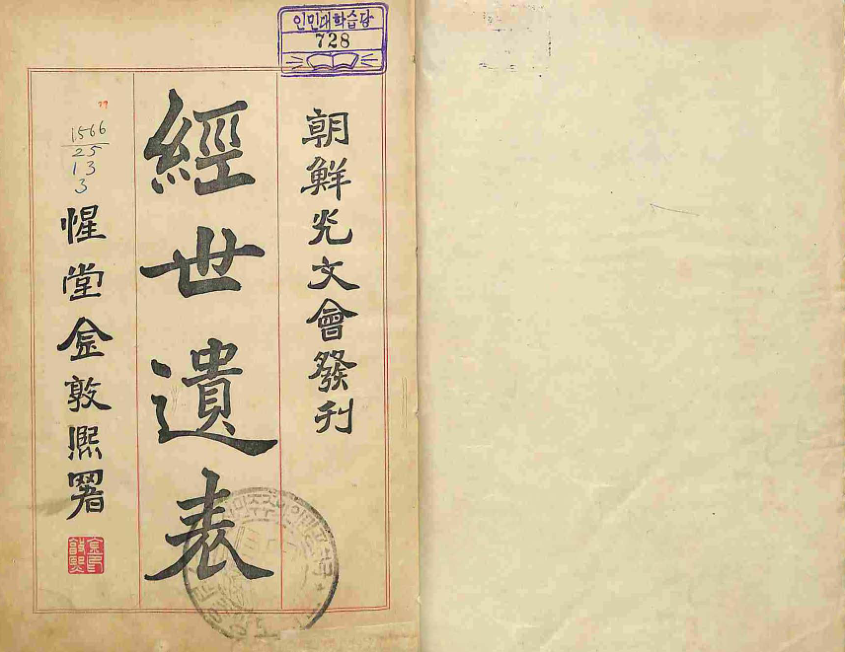 인민대학습당
728
朝鮮光文會發刊
經世遺表
1566
25
13
3
惺堂金敦熙署